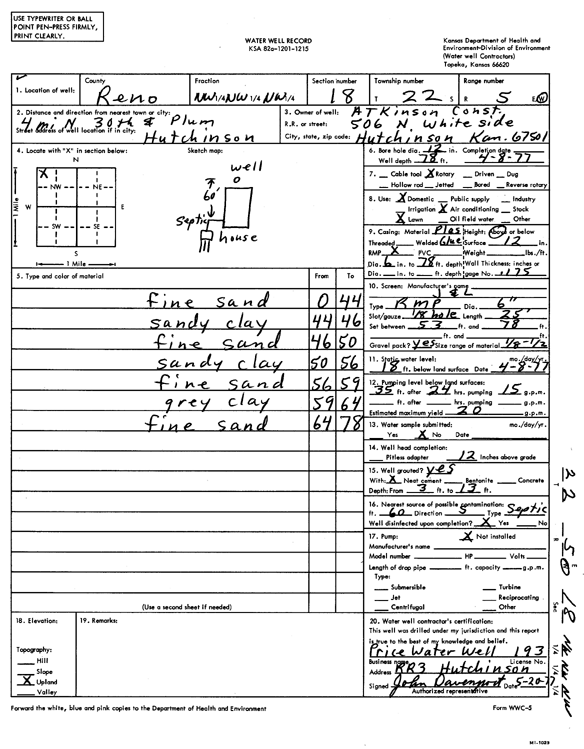 USE TYPEWRITER OR BALL
POINT PEN-PRESS FIRMLY,
PRINT CLEARLY.
WATER WELL RECORD
KSA 82a-1201-1215
Kansas Department of Health and
Environment-Division of Environment
(Water well Contractors)
Topeka, Kansas 66620
1. Location of well: County Reno Fraction NW 1/4 NW 1/4 NW 1/4 Section number 18 Township number T 22 S Range number R 5 E W
2. Distance and direction from nearest town or city:
4 mi N 30th & Plum
Street address of well location if in city: Hutchinson
3. Owner of well: ATKinson Const.
R.R. or street: 506 N White side
City, state, zip code: Hutchinson Kan. 67501
4. Locate with "X" in section below: Sketch map:
N
X
NW NE
W E
SW SE
S
1 Mile
1 Mile
well
O
60'
Septic
house
6. Bore hole dia. 12 in. Completion date
Well depth 78 ft. 4-8-77
7. Cable tool X Rotary Driven Dug
Hollow rod Jetted Bored Reverse rotary
8. Use: X Domestic Public supply Industry
Irrigation X Air conditioning Stock
X Lawn Oil field water Other
9. Casing: Material Plas Height: Above or below
Threaded Welded Glue Surface 12 in.
RMP X PVC Weight lbs./ft.
Dia. 6 in. to 78 ft. depth Wall Thickness: inches or
Dia. in. to ft. depth gage No. .175
5. Type and color of material From To
fine sand 0 44
sandy clay 44 46
fine sand 46 50
sandy clay 50 56
fine sand 56 59
grey clay 59 64
fine sand 64 78
(Use a second sheet if needed)
10. Screen: Manufacturer's name
J & L
Type RMP Dia. 6"
Slot/gauze 1/8 hole Length 25'
Set between 53 ft. and 78 ft.
ft. and ft.
Gravel pack? yes Size range of material 1/8-1/2
11. Static water level: mo./day/yr.
18 ft. below land surface Date 4-8-77
12. Pumping level below land surfaces:
35 ft. after 24 hrs. pumping 15 g.p.m.
ft. after hrs. pumping g.p.m.
Estimated maximum yield 20 g.p.m.
13. Water sample submitted: mo./day/yr.
Yes X No Date
14. Well head completion:
Pitless adapter 12 Inches above grade
15. Well grouted? yes
With: X Neat cement Bentonite Concrete
Depth: From 3 ft. to 13 ft.
16. Nearest source of possible contamination: Septic
ft. 60 Direction S Type
Well disinfected upon completion? X Yes No
17. Pump: X Not installed
Manufacturer's name
Model number HP Volts
Length of drop pipe ft. capacity g.p.m.
Type:
Submersible Turbine
Jet Reciprocating
Centrifugal Other
18. Elevation: 19. Remarks:
Topography:
Hill
Slope
X Upland
Valley
20. Water well contractor's certification:
This well was drilled under my jurisdiction and this report
is true to the best of my knowledge and belief.
Price Water Well 193
Business name License No.
Address RR3 Hutchinson
Signed John Davenport Date 5-20-77
Authorized representative
Forward the white, blue and pink copies to the Department of Health and Environment Form WWC-5